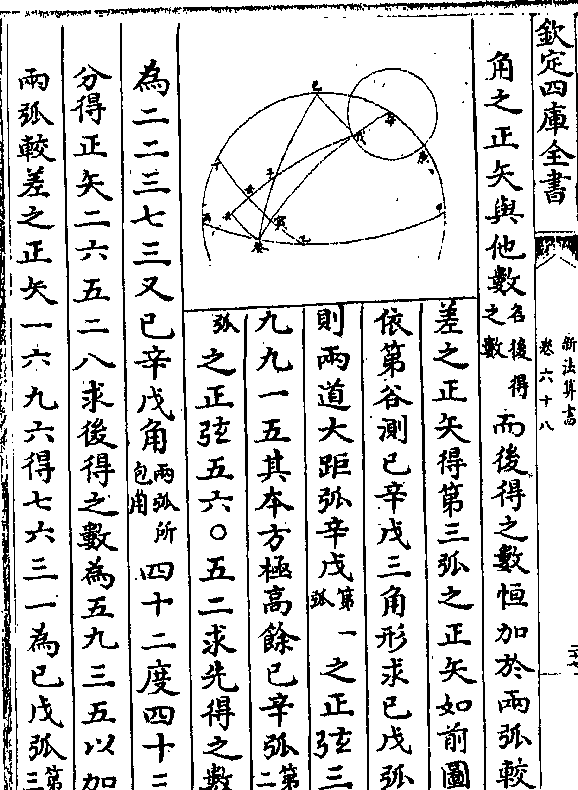 欽定四庫全書
新法算書
卷六十八
角之正矢與他數名後得之數而後得之數恒加於兩弧較
差之正矢得第三弧之正矢如前圖
依第谷測己辛戊三角形求己戊弧
則兩道大距弧辛戊第一弧之正弦三
九九一五其本方極高餘己辛弧第二
弧之正弦五六〇五二求先得之數
為二二三七三又己辛戊角兩弧所包角四十二度四十二
分得正矢二六五二八求後得之數為五九三五以加
兩弧較差之正矢一六九六得七六三一為己戊弧第三
己
辛
戊